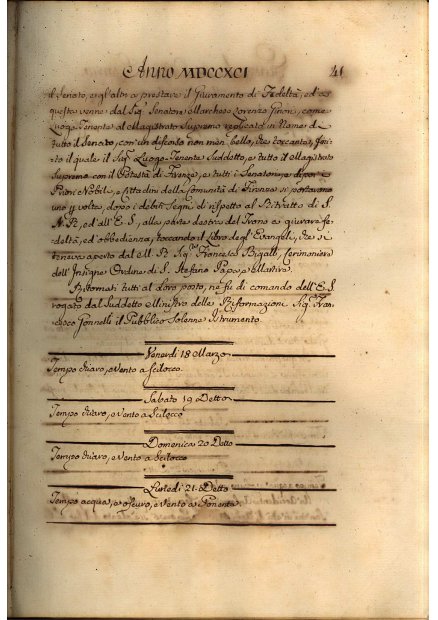 Anno MDCCXCI 41
il Senato, e gl'altri a prestare il Giuramento di Fedeltà, ed a
questa venne dal Sig.r Senatore Marchese Lorenzo Ginori, come
Luogo Tenente al Magistrato Supremo replicato in Nome di
tutto il Senato, con un discorso non men bello, che toccante, fini-
to il quale il Sig.r Luogo-Tenente Suddetto, e tutto il Magistrato
Supremo con il Potestà di Firenze, e tutti i Senatori, e dipoi i
Priori Nobili, e Cittadini della Comunità di Firenze si portarono
uno p. volta, dopo i debiti Segni di rispetto al Ritratto di S.
A. R., ed all'E. S., alla parte destra del Trono a giurare fe-
deltà, ed obbedienza, toccando il Libro degl'Evangeli, che si
teneva aperto dal Sig.r Francesco Bigalli, Cerimoniere
dell'Insigne Ordine di S. Stefano Papa, e Martire.
Ritornati tutti al loro posto, ne fu di comando dell'E. S.
rogato dal Suddetto Ministro delle Riformazioni Sig.r Fran-
cesco il Pubblico Solenne Istrumento.
Venerdì 18 Marzo
Tempo chiaro, e Vento a Scilocco
Sabato 19 Detto
Tempo chiaro, e Vento a Scilocco
Domenica 20 Detto
Tempo chiaro, e Vento a Scilocco
Lunedì 21 Detto
Tempo acqua, e oscuro, e Vento a Ponente